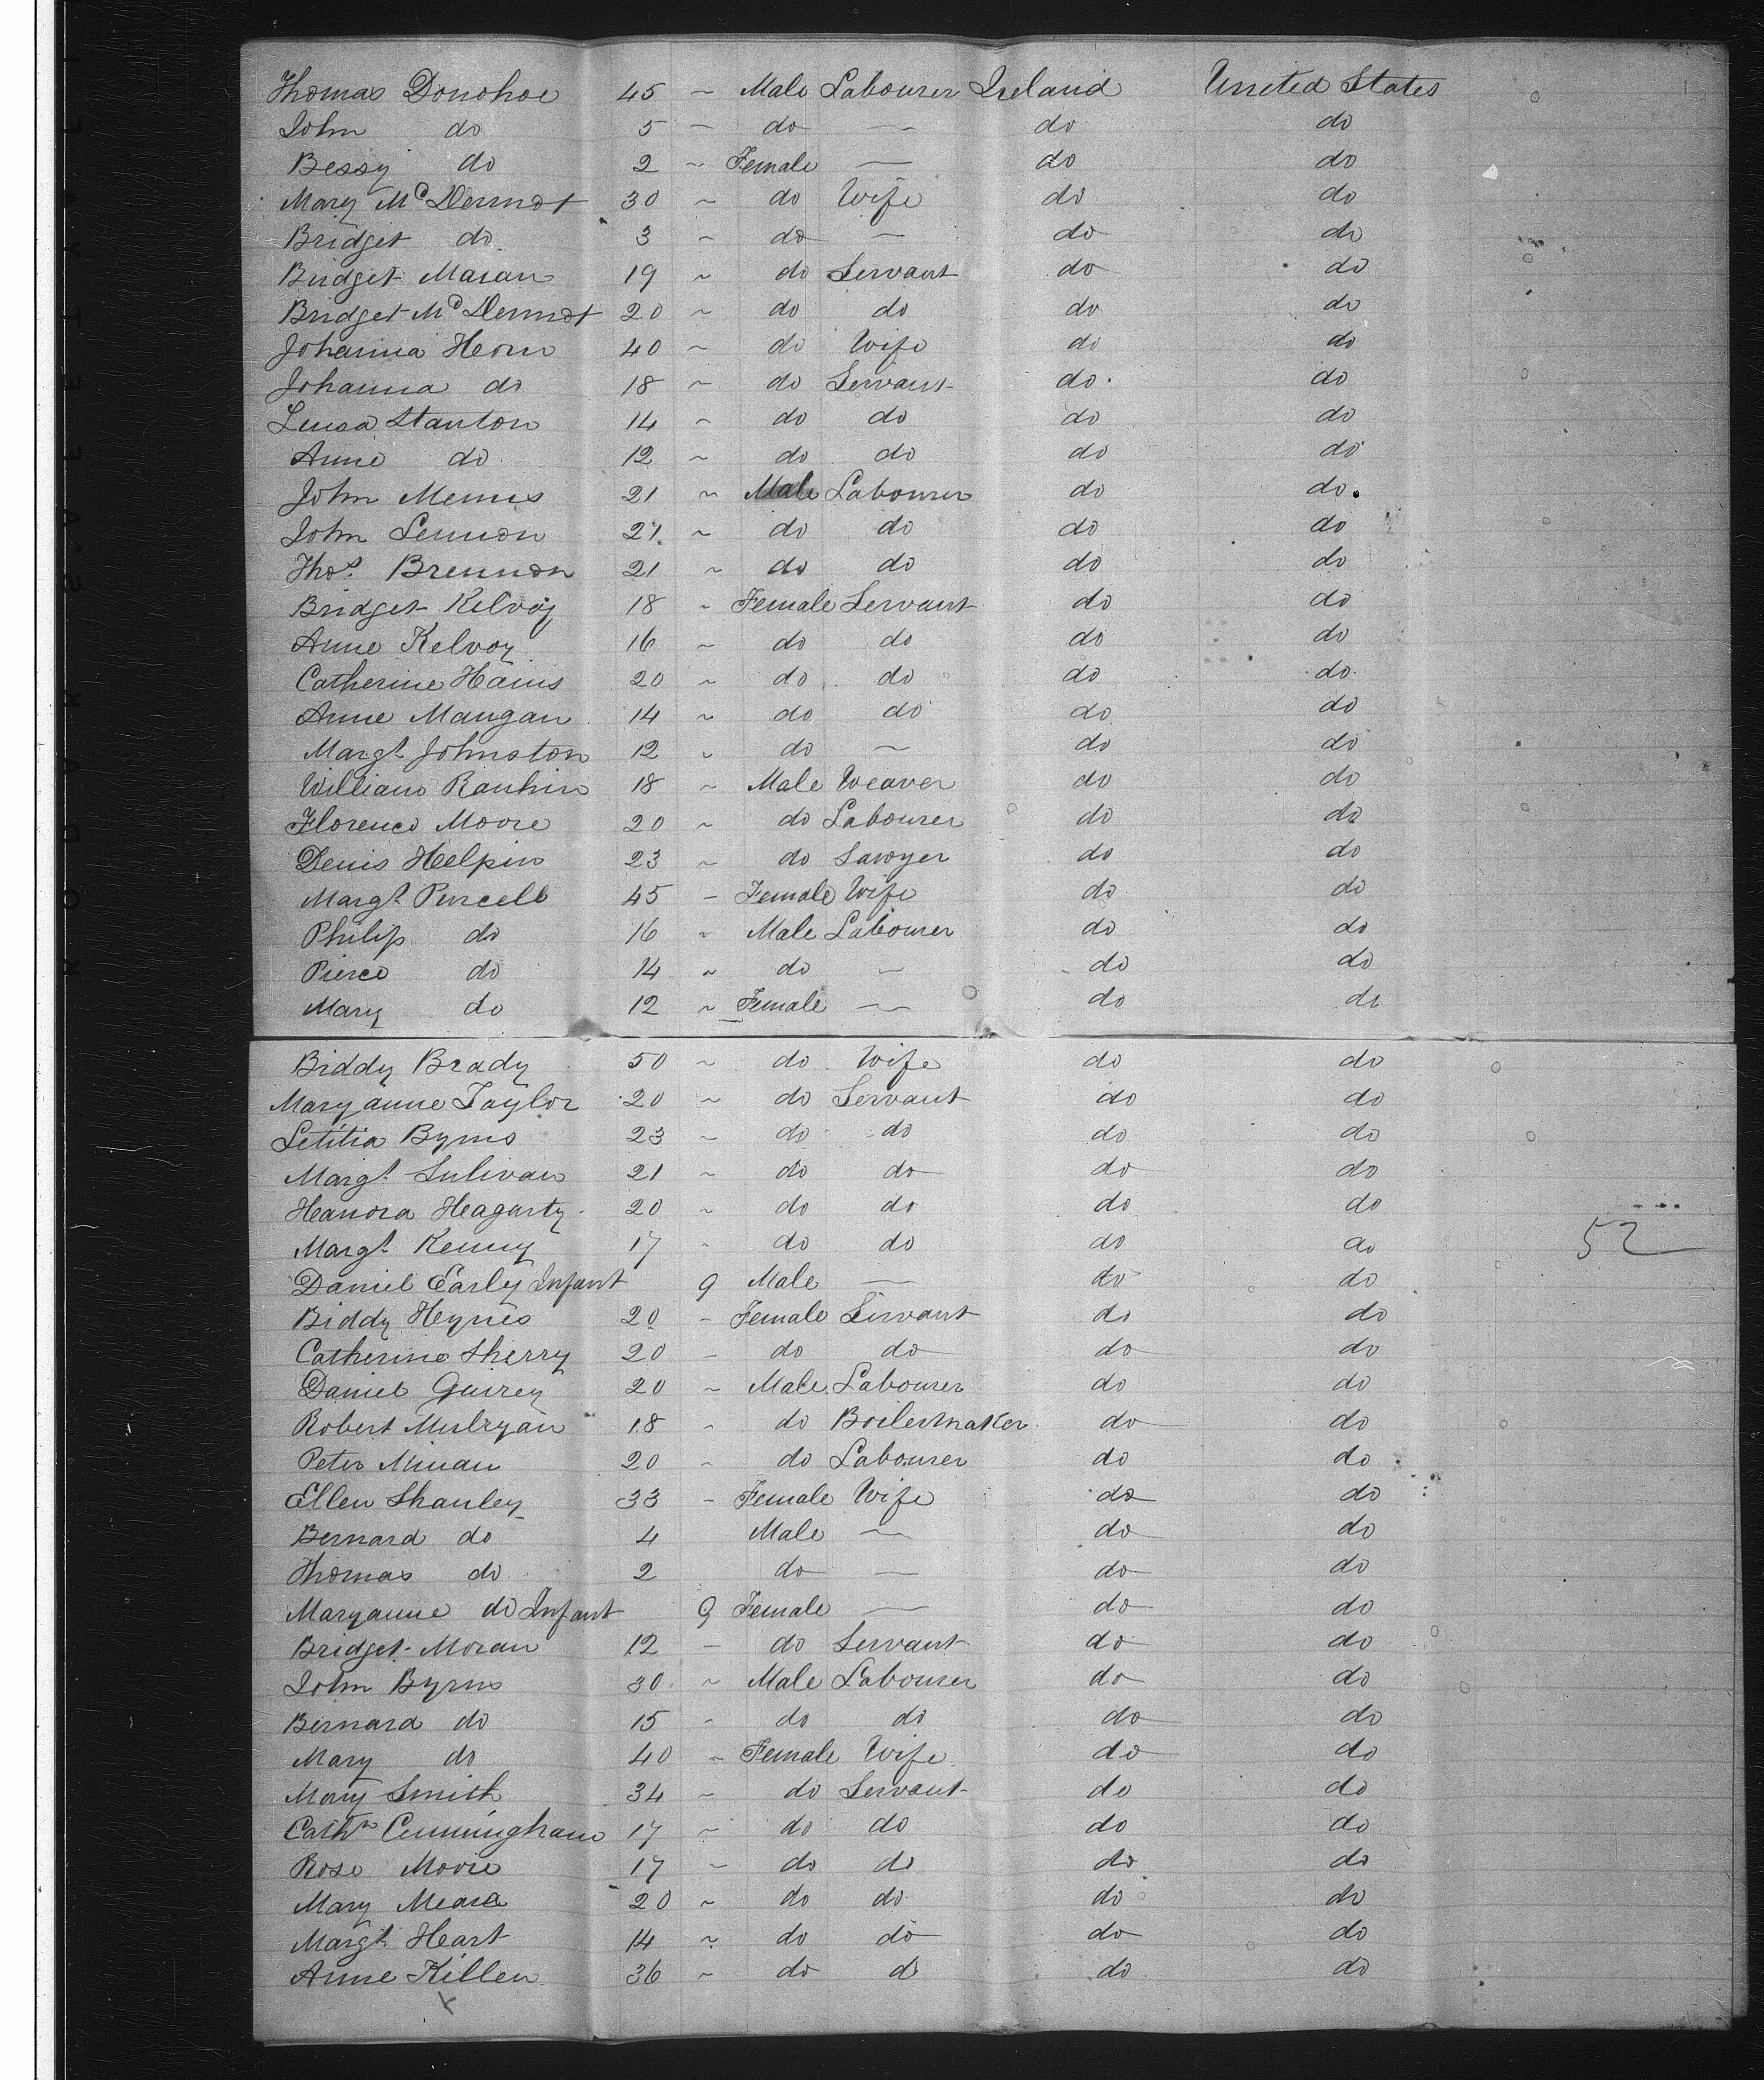 Thomas Donohoe 45 ~ Male Labourer Ireland United States
John do 5 ~ do — do do
Bessy do 2 ~ Female — do do
Mary McDermot 30 ~ do Wife do do
Bridget do 3 ~ do — do do
Bridget Maran 19 ~ do Servant do do
Bridget McDermot 20 ~ do do do do
Johanna Hearn 40 ~ do Wife do do
Johanna do 18 ~ do Servant do do
Luisa Stanton 14 ~ do do do do
Anne do 12 ~ do do do do
John 21 ~ Male Labourer do do
John Lennon 21 ~ do do do do
Thos. Brennon 21 ~ do do do do
Bridget Kelvoy 18 ~ Female Servant do do
Anne Kelvoy 16 ~ do do do do
Catherine 20 ~ do do do do
Anne Mangan 14 ~ do do do do
Margt. Johnston 12 ~ do ~ do do
William Rankin 18 ~ Male Weaver do do
Florence Moore 20 ~ do Labourer do do
Denis Helpin 23 ~ do Sawyer do do
Margt. Purcell 45 – Female Wife do do
Philip do 16 ~ Male Labourer do do
Pierce do 14 ~ do — do do
Mary do 12 ~ Female — do do
Biddy Brady 50 ~ do Wife do do
Maryanne Taylor 20 ~ do Servant do do
Letitia Byrns 23 ~ do do do do
Margt. Sulivan 21 ~ do do do do
Heanora Heagarty 20 ~ do do do do
Margt. Kenny 17 ~ do do do do 52
Daniel Early Infant 9 Male — do do
Biddy Heynes 20 – Female Servant do do
Catherine Sherry 20 – do do do do
Daniel Guirey 20 ~ Male Labourer do do
Robert Mulryan 18 ~ do Boilermaker do do
Peter 20 ~ do Labourer do do
Ellen Shanley 33 – Female Wife do do
Bernard do 4 Male — do do
Thomas do 2 do — do do
Maryanne do Infant 9 Female — do do
Bridget Moran 12 – do Servant do do
John Byrns 30 ~ Male Labourer do do
Bernard do 15 ~ do do do do
Mary do 40 ~ Female Wife do do
Mary Smith 34 ~ do Servant do do
Cathn Cunningham 17 ~ do do do do
Rose Moore 17 ~ do do do do
Mary Meara 20 ~ do do do do
Margt. Heart 14 ~ do do do do
Anne Killen 36 ~ do do do do
x